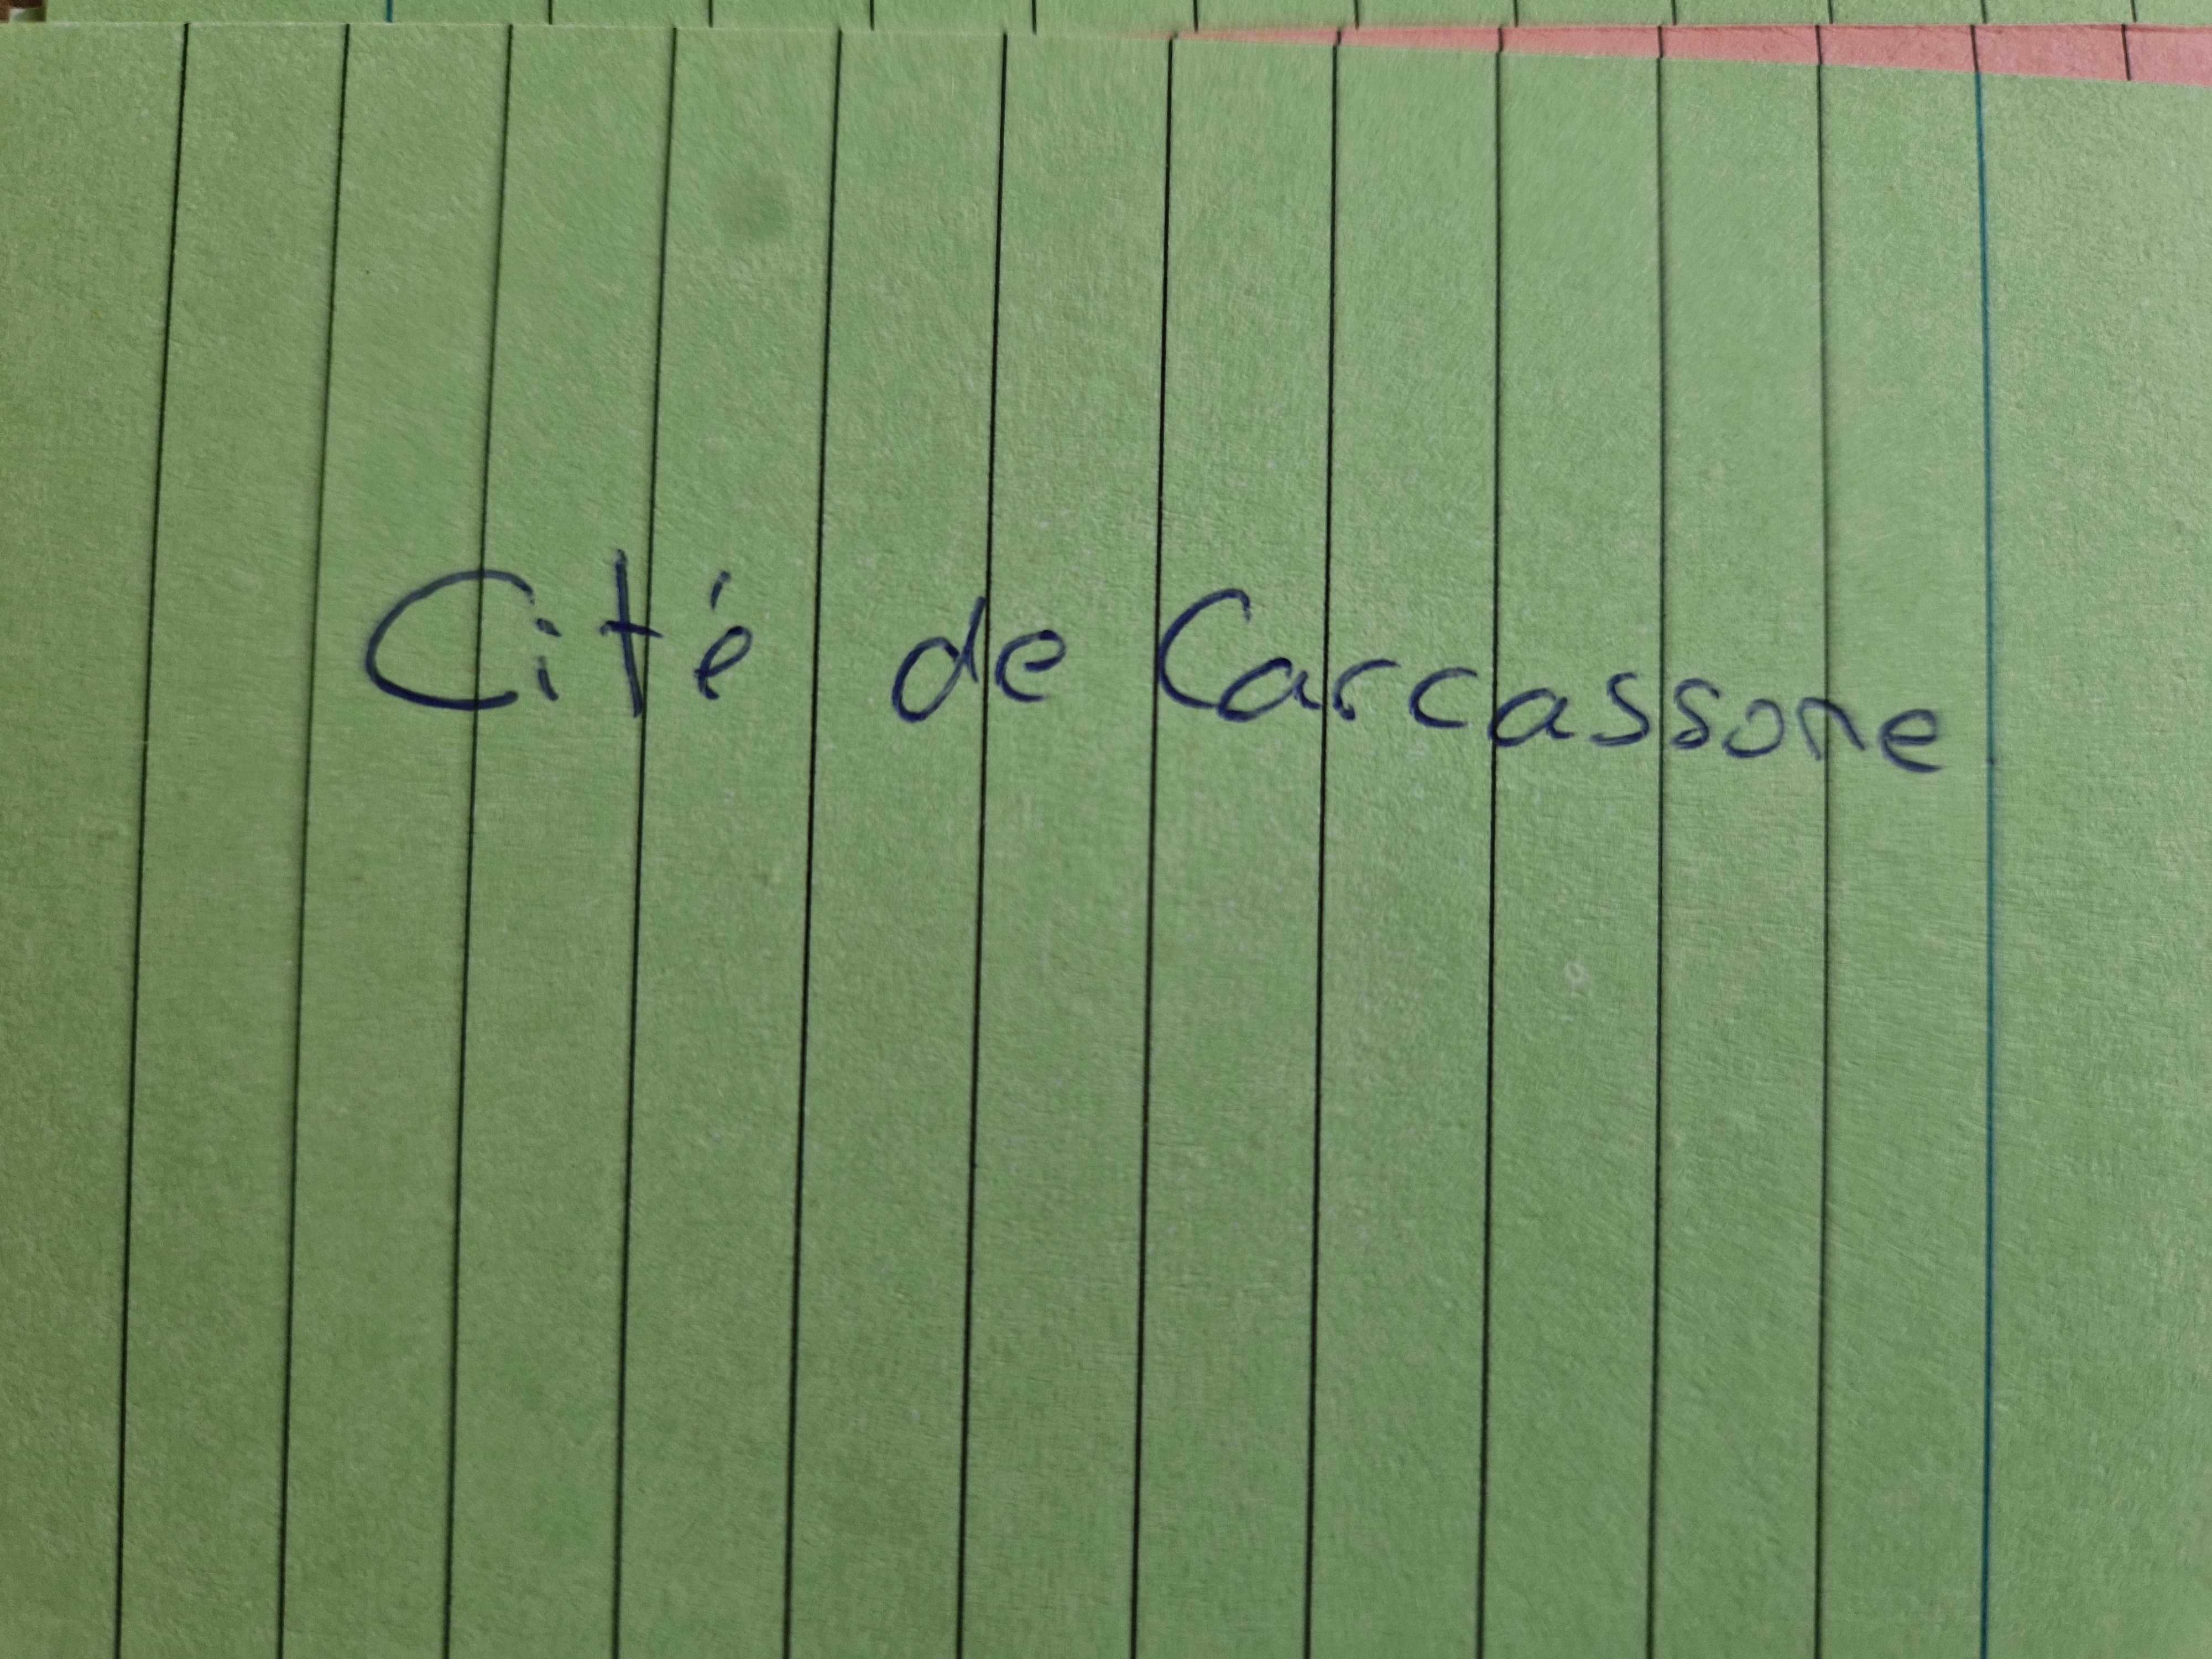 Cité de Carcassone